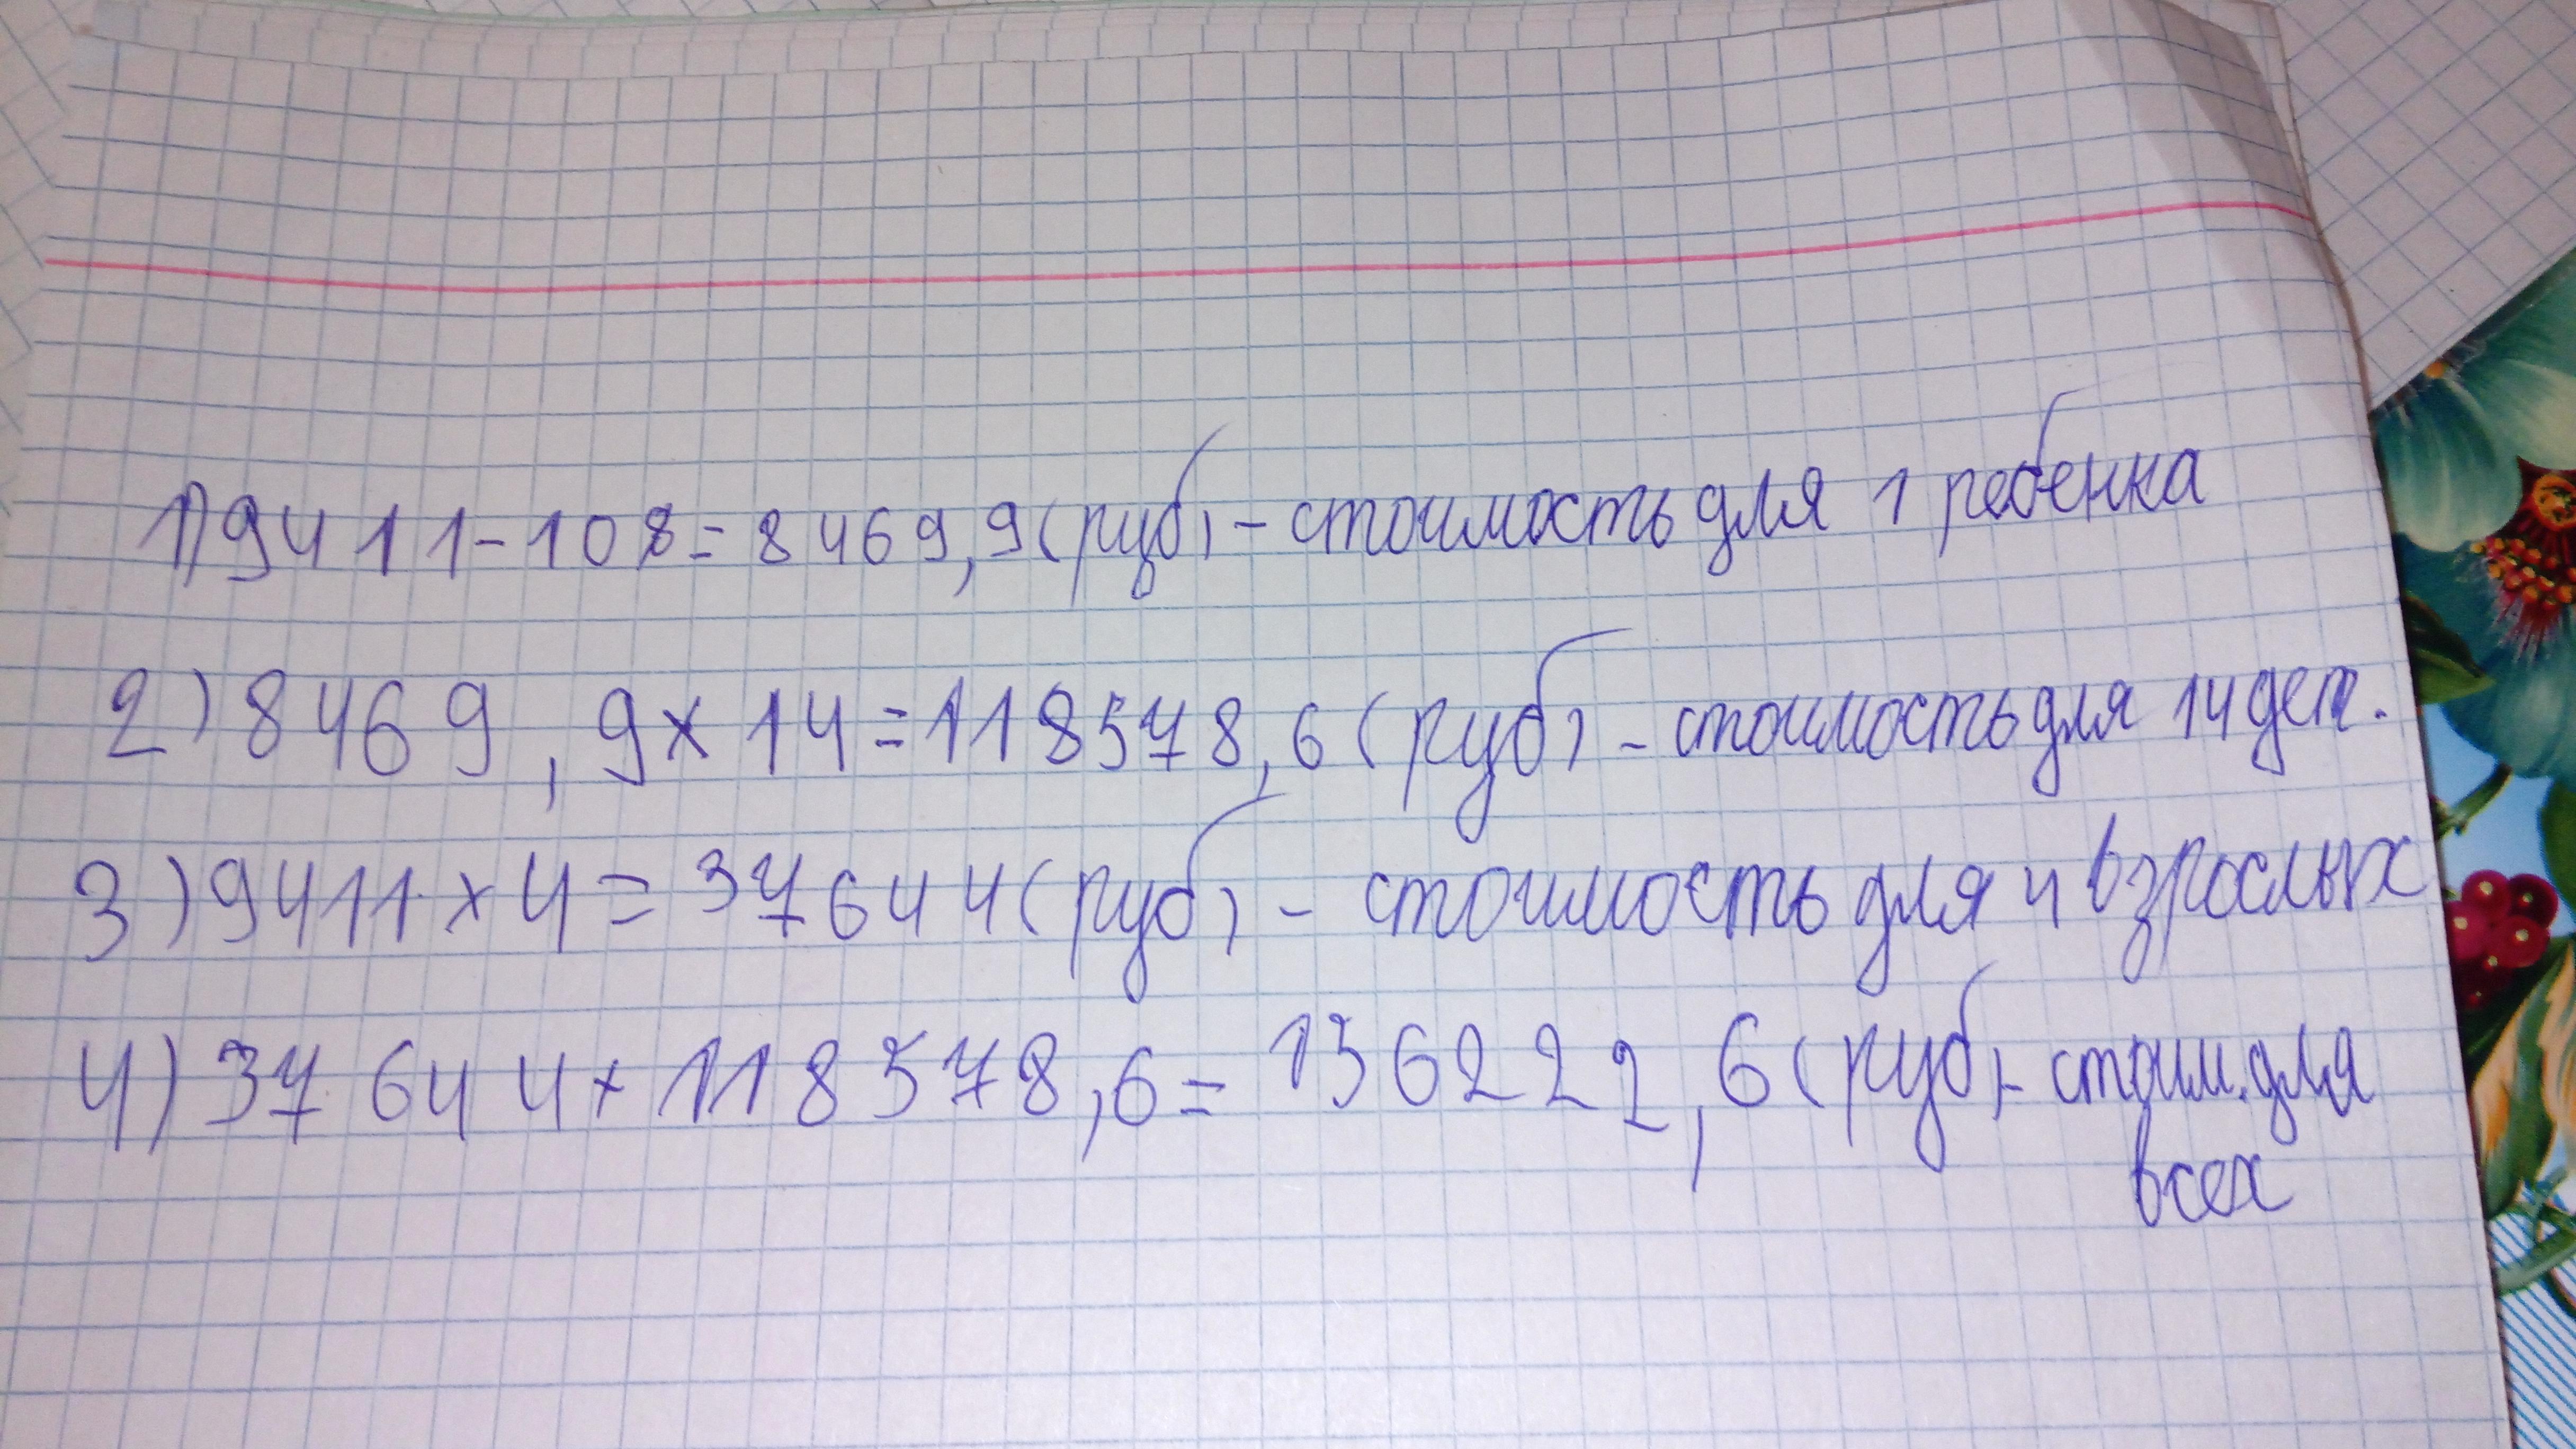 1) 9411-10%=8469,9(руб) - стоимость для 1 ребенка
2) 8469,9×14=118578,6(руб) - стоимость для 14 дет.
3) 9411×4=37644(руб) - стоимость для 4 взрослых
4) 37644+118578,6=136222,6(руб) - стоим. для
всех